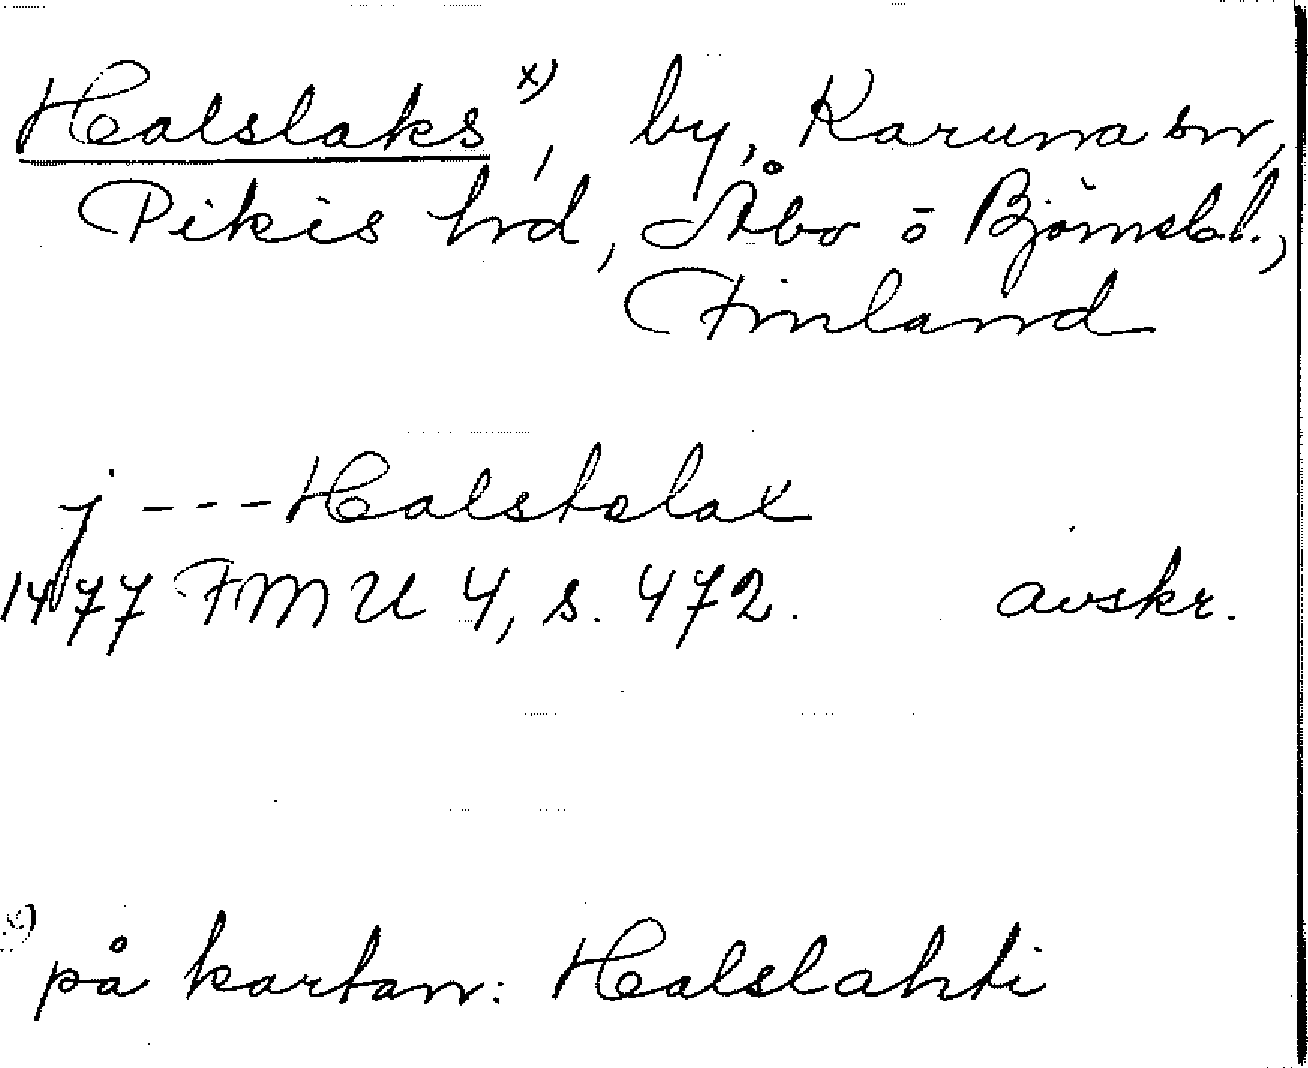 Halslaks x), by, Karuna sn,
Pikis hrd, Åbo o Björnebl.,
Finland
j --- Halstelax
1477 FMU 4, s. 472. avskr.
x) på kartan: Halslahti